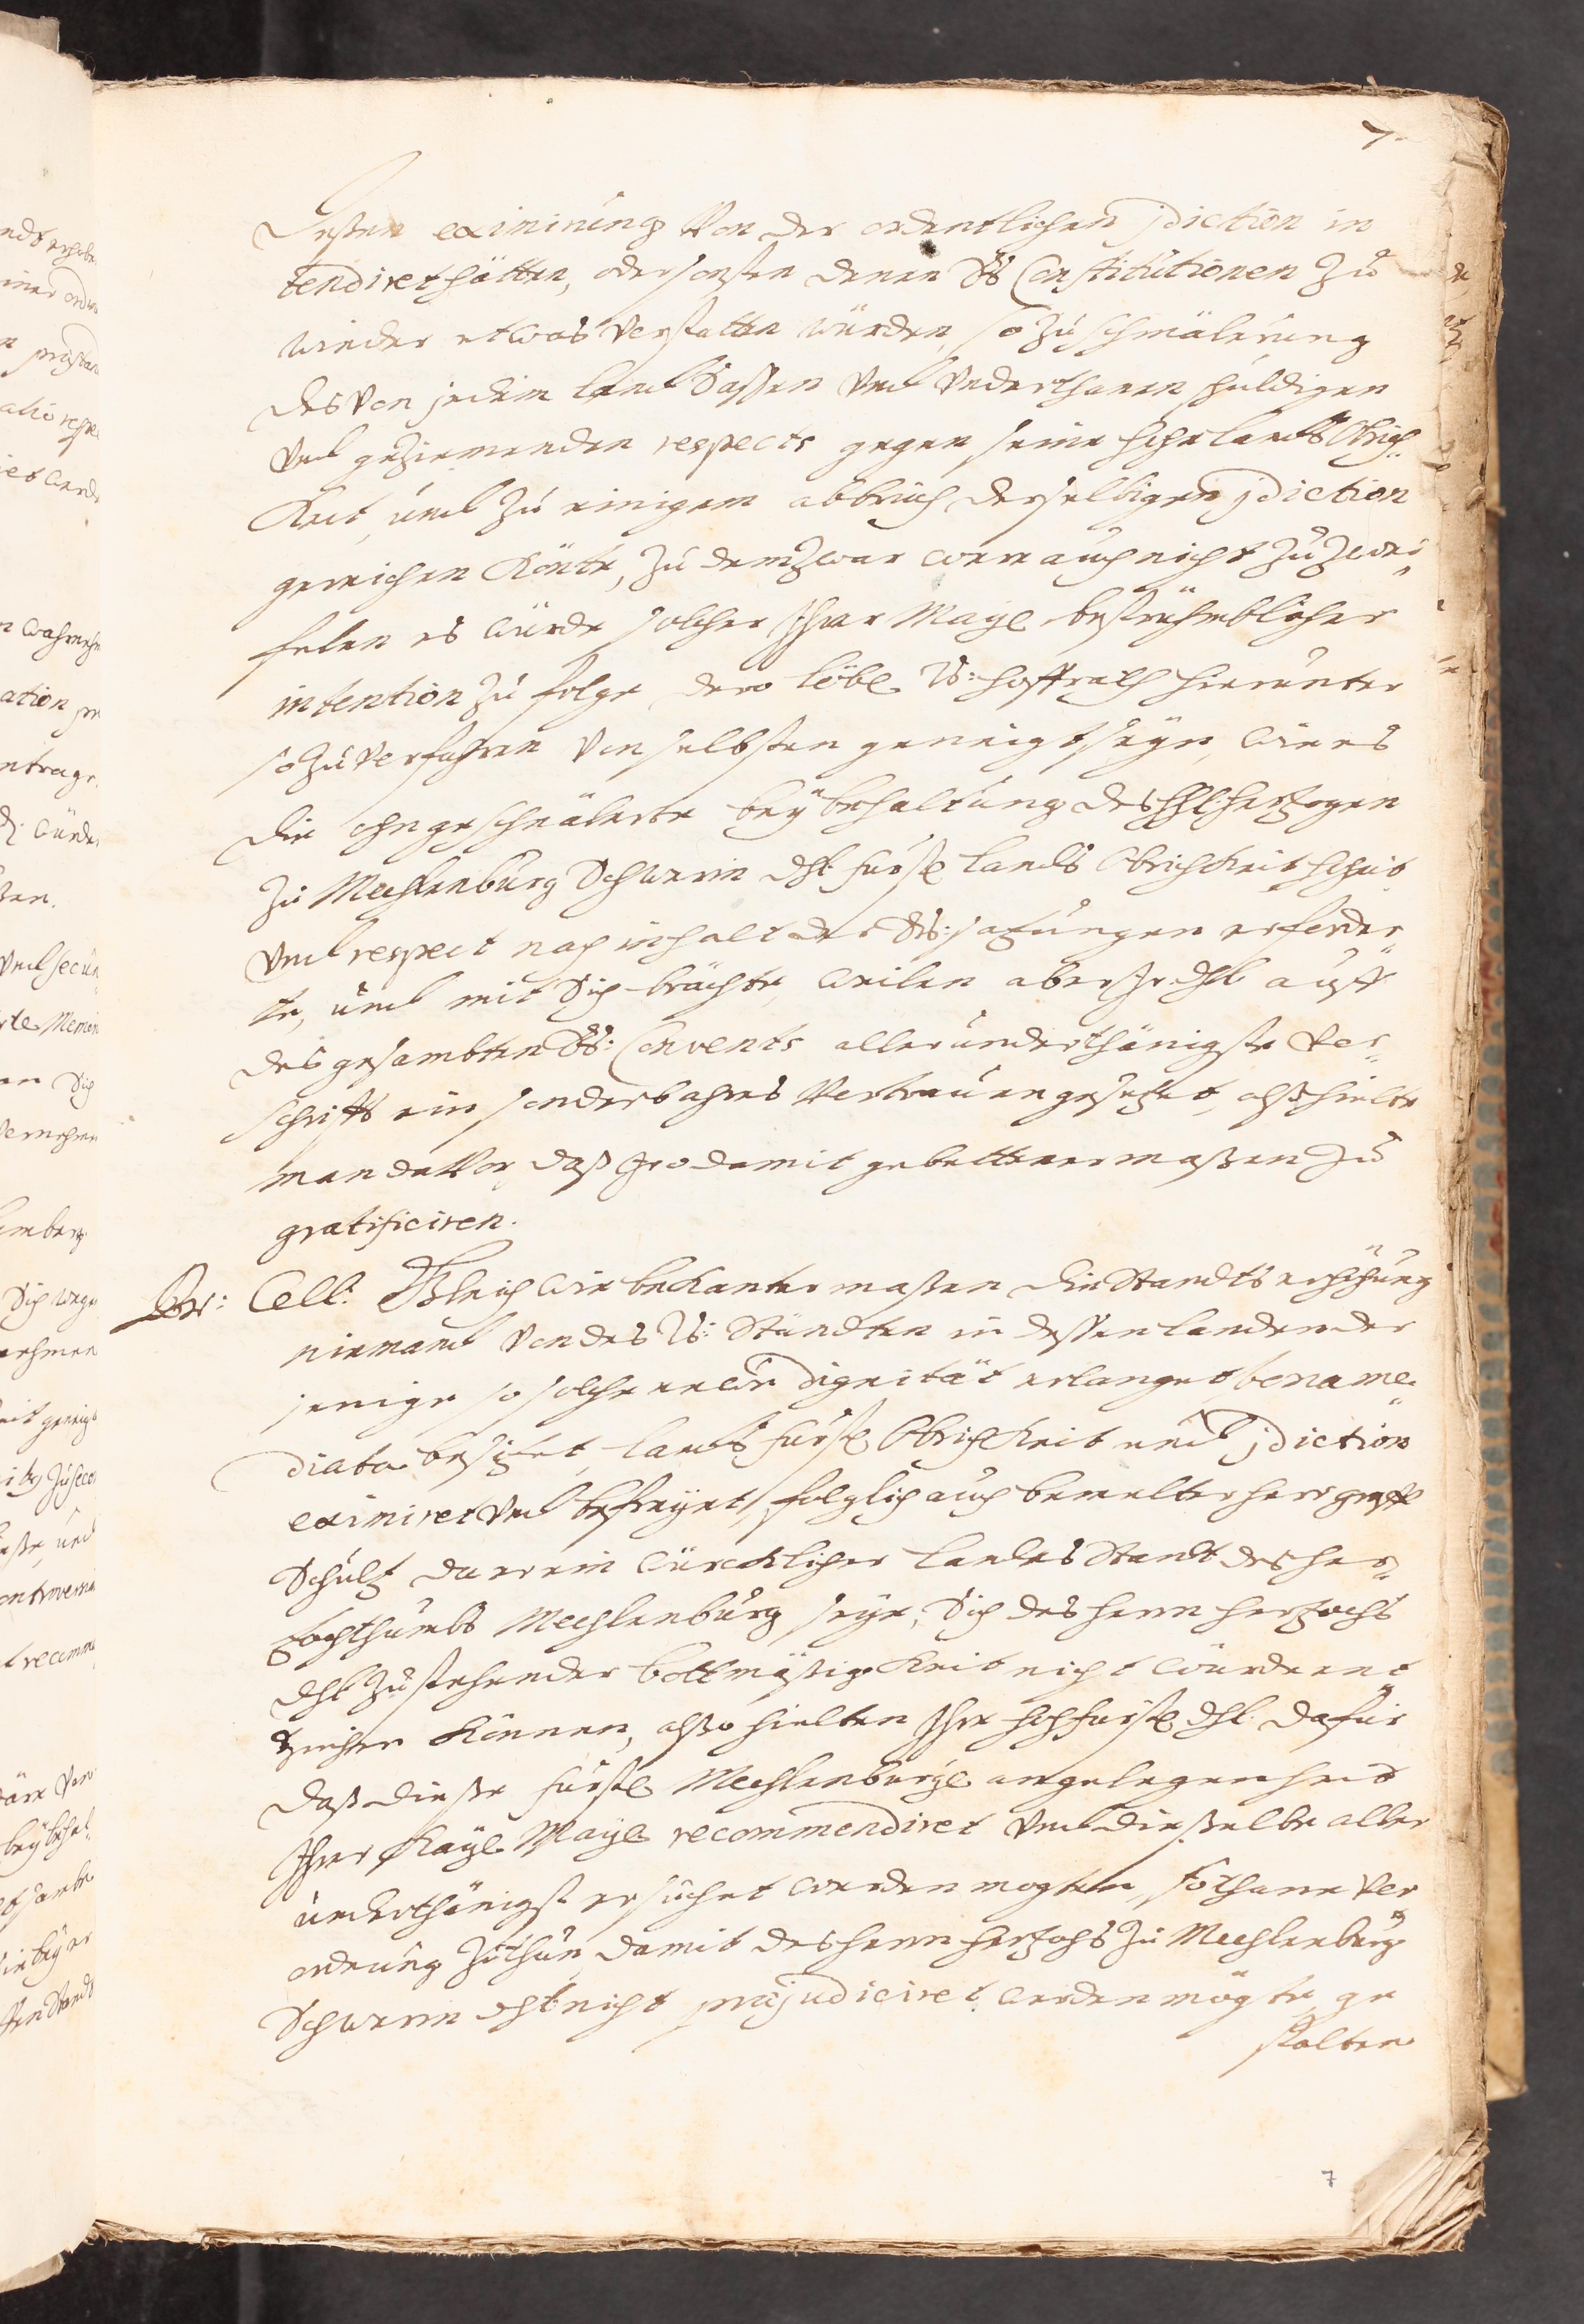 7.
dessen eximirung von der ordentlichen jdiction in
tendiret hätten, oder sonsten denen Rs Constitutionen zu
wieder etwas verstatten würden, so zu schmälerung
des von jedem landsassen und underthanen schuldigen
und geziemenden respects gegen seine hohe lands Obrig„
keit, und zu einigem abbruch derselbigen jdiction
gereichen könte, zu dem zwar were auch nicht zu zwei„
felen es würde solcher Ihrer Mayl. höchstrühmblicher
intention zu folge, dero löbl. Rs: hoffrath hierunter
so zu verfahren von selbsten geneigt seyn, wie es
die ohngeschmälerte beybehaltung des hl herzogen
zu Mechlenburg Schwerin dhl. fürstl. lands Obrigkeit hoheit
und respect nach inhalt der Rs: satzungen erforder„
te, und mit sich brächte, weilen aber Ire dhl. auff
des gesambten Rs: Convents allerunderthänigste Vor„
schrifft ein sonderbahres Vertrauen gesetzet, alß hielte
man davor, daß Iro damit gebettener maßen zu
gratificiren.
Br: Cell: Gleich wie bekanter maßen die Standts erhöhung
niemand von des Rs: Ständten in dessen landen der
jenige so solche newe dignität erlanget bona me„
diata besitzet, lands fürstl. Obrigkeit und jdiction
eximiret und befreyet, folglich auch bemelter herr graff
Schultz da er ein würcklicher landes Standt des her„
zogthumbs Mechlenburg seye, sich des herrn herzochs
dhl. zustehender bottmäßigkeit nicht würde ent
ziehen können, alßo hielten Ihre hochfürstl. dhl. dafür
daß dieße fürstl. Mechlenburgl. angelegenheit
Ihrer Kayl. Mayl. recommendiret und dießelbe aller
underthänigst ersuchet werden mögten, sothane Ver
ordnung zu thun, damit des herrn herzochs zu Mechlenburg
Schwerin dhl. nicht præjudiciret werden mögte, ge
stalten
7